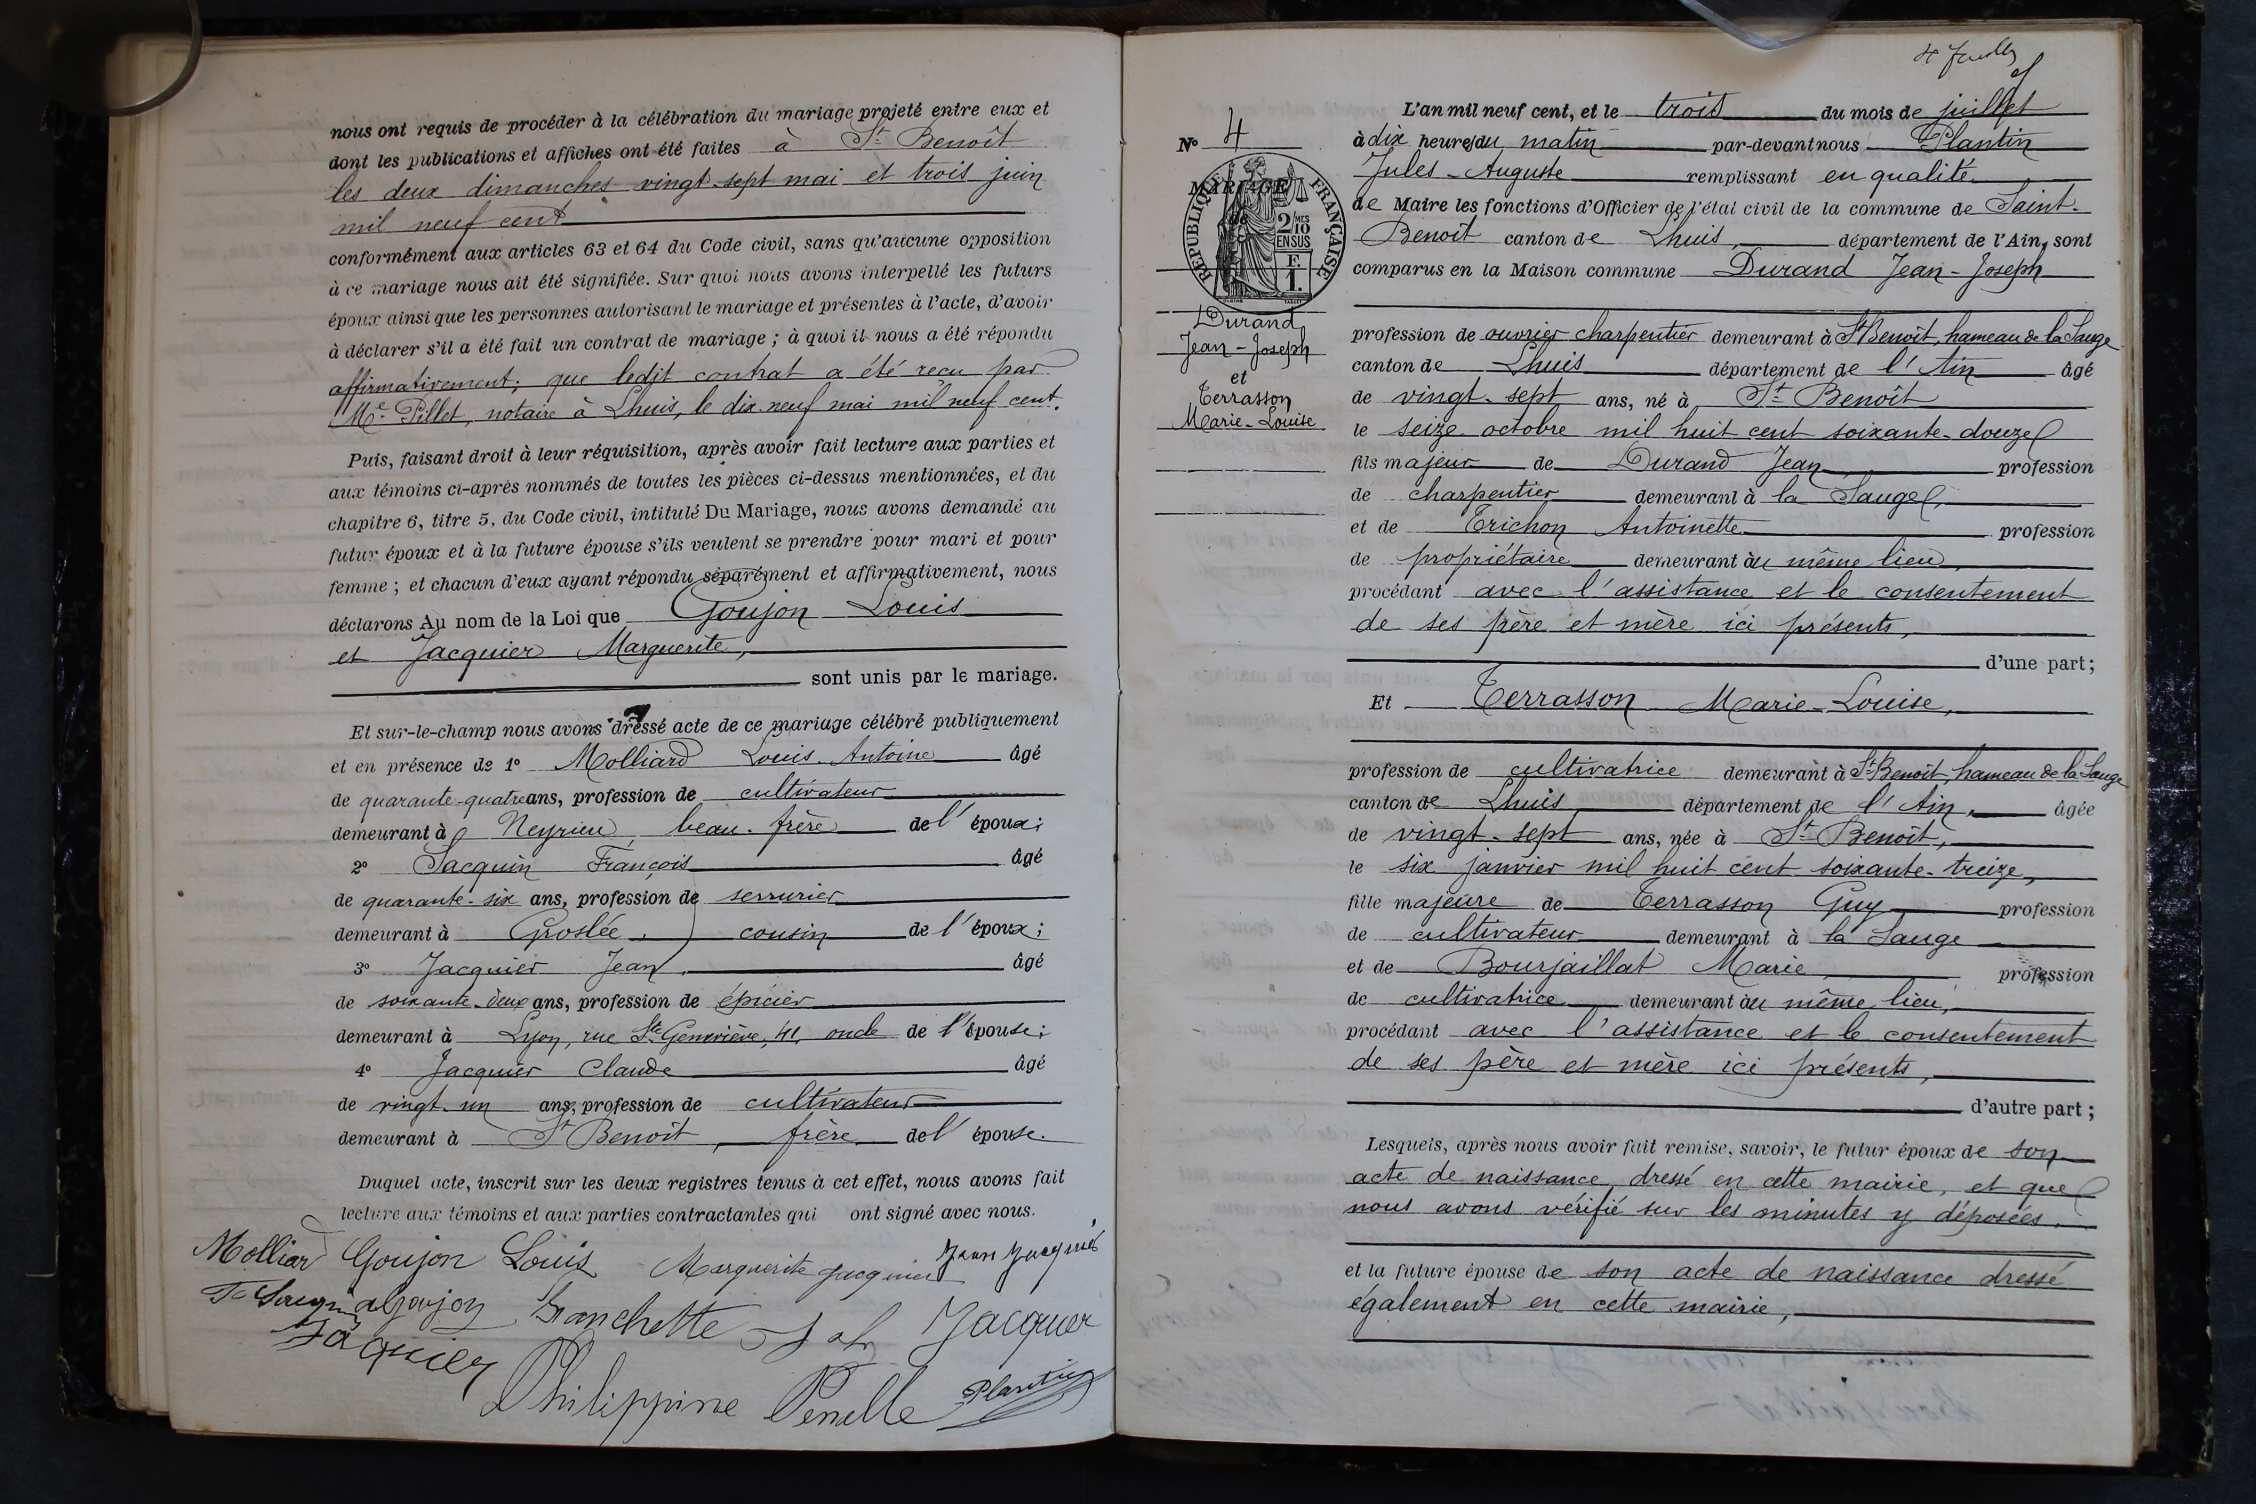 nous ont requis de procéder à la célébration du mariage projeté entre eux et
dont les publications et affiches ont été faites à St Benoît
les deux dimanches vingt-sept mai et trois juin
mil neuf cent
conformément aux articles 63 et 64 du Code civil, sans qu'aucune opposition
à ce mariage nous ait été signifiée. Sur quoi nous avons interpellé les futurs
époux ainsi que les personnes autorisant le mariage et présentes à l'acte, d'avoir
à déclarer s'il a été fait un contrat de mariage ; à quoi il nous a été répondu
affirmativement; que ledit contrat a été reçu par
Me Pillet, notaire à Lhuis, le dix neuf mai mil neuf cent.
Puis, faisant droit à leur réquisition, après avoir fait lecture aux parties et
aux témoins ci-après nommés de toutes les pièces ci-dessus mentionnées, et du
chapitre 6, titre 5, du Code civil, intitulé Du Mariage, nous avons demandé au
futur époux et à la future épouse s'ils veulent se prendre pour mari et pour
femme ; et chacun d'eux ayant répondu séparément et affirmativement, nous
déclarons Au nom de la Loi que Goujon Louis
et Jacquier Marguerite,
sont unis par le mariage.
Et sur-le-champ nous avons dressé acte de ce mariage célébré publiquement
et en présence de 1° Molliard Louis Antoine âgé
de quarante-quatre ans, profession de cultivateur
demeurant à Neyrieu, beau-frère de l'époux;
2° Sacquin François âgé
de quarante-six ans, profession de serrurier
demeurant à Groslée, cousin de l'époux;
3° Jacquier Jean, âgé
de soixante-deux ans, profession de épicier
demeurant à Lyon, rue Ste Geneviève, 41, oncle de l'épouse;
4° Jacquier Claude âgé
de vingt-un ans, profession de cultivateur
demeurant à St Benoît, frère de l'épouse.
Duquel acte, inscrit sur les deux registres tenus à cet effet, nous avons fait
lecture aux témoins et aux parties contractantes qui ont signé avec nous.
Molliard Goujon Louis Marguerite Jacquier Jean Jacquier
Goujon Jacquier
Jacquier
Philippine Penelle Plantin
4 Juillet
N° 4
MARIAGE
RÉPUBLIQUE FRANÇAISE
2/10 MES
EN SUS
F.
1.
Durand
Jean-Joseph
et
Terrasson
Marie-Louise
L'an mil neuf cent, et le trois du mois de juillet
à dix heures du matin par-devant nous Plantin
Jules-Auguste remplissant en qualité
de Maire les fonctions d'Officier de l'état civil de la commune de Saint-
Benoît canton de Lhuis, département de l'Ain, sont
comparus en la Maison commune Durand Jean-Joseph
profession de ouvrier charpentier demeurant à St Benoît, hameau de la Sauge
canton de Lhuis département de l'Ain âgé
de vingt-sept ans, né à St Benoît
le seize octobre mil huit cent soixante-douze
fils majeur de Durand Jean profession
de charpentier demeurant à la Sauge,
et de Trichon Antoinette profession
de propriétaire demeurant au même lieu,
procédant avec l'assistance et le consentement
de ses père et mère ici présents,
d'une part;
Et Terrasson Marie-Louise,
profession de cultivatrice demeurant à St Benoît, hameau de la Sauge
canton de Lhuis département de l'Ain, âgée
de vingt-sept ans, née à St Benoît,
le six janvier mil huit cent soixante-treize,
fille majeure de Terrasson Guy profession
de cultivateur demeurant à la Sauge
et de Bourjaillat Marie profession
de cultivatrice demeurant au même lieu,
procédant avec l'assistance et le consentement
de ses père et mère ici présents,
d'autre part ;
Lesquels, après nous avoir fait remise, savoir, le futur époux de son
acte de naissance, dressé en cette mairie, et que
nous avons vérifié sur les minutes y déposées,
et la future épouse de son acte de naissance dressé
également en cette mairie,